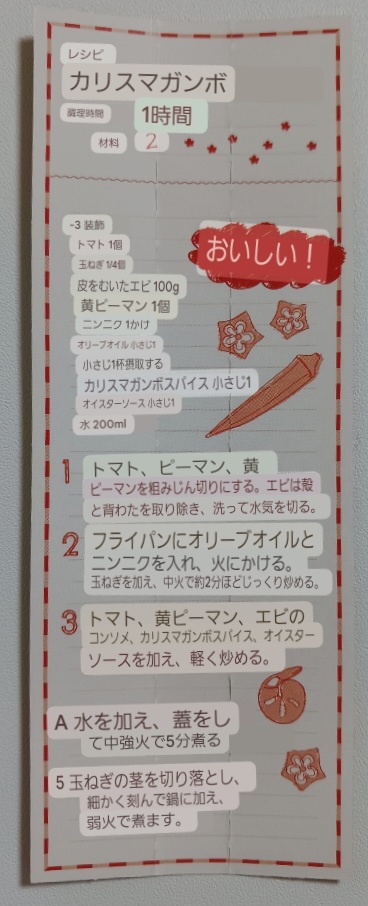 レシピ
カリスマガンボ
調理時間
1時間
材料
2
-3 装飾
トマト 1個
玉ねぎ 1/4個
皮をむいたエビ 100g
黄ピーマン 1個
ニンニク 1かけ
オリーブオイル 小さじ1
小さじ1杯摂取する
カリスマガンボスパイス 小さじ1
オイスターソース 小さじ1
水 200ml
おいしい！
1 トマト、ピーマン、黄
ピーマンを粗みじん切りにする。エビは殻
と背わたを取り除き、洗って水気を切る。
2 フライパンにオリーブオイルと
ニンニクを入れ、火にかける。
玉ねぎを加え、中火で約2分ほどじっくり炒める。
3 トマト、黄ピーマン、エビの
コンソメ、カリスマガンボスパイス、オイスター
ソースを加え、軽く炒める。
A 水を加え、蓋をし
て中強火で5分煮る
5 玉ねぎの茎を切り落とし、
細かく刻んで鍋に加え、
弱火で煮ます。